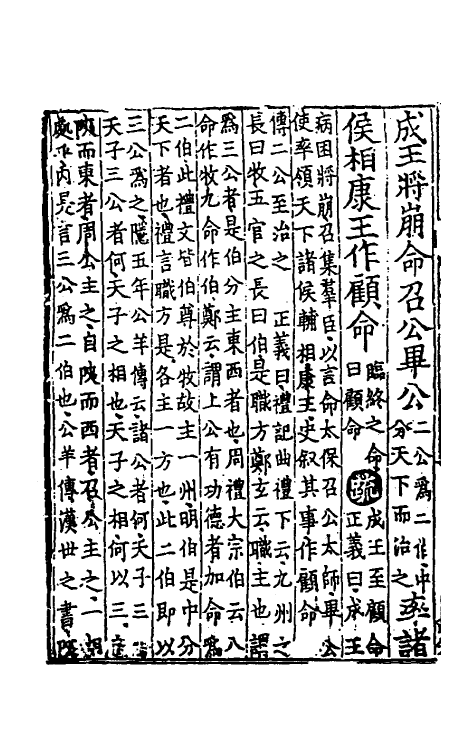 成王將崩命召公畢公二公爲二伯中分天下而治之率諸
侯相康王作顧命臨終之命曰顧命疏成王至顧命正義曰成王
病困將崩召集羣臣以言命太保召公太師畢公
使率領天下諸侯輔相康王史叙其事作顧命
傳二公至治之 正義曰禮記曲禮下云九州之
長曰牧五官之長曰伯是職方鄭玄云職主也謂
爲三公者是伯分主東西者也周禮大宗伯云八
命作牧九命作伯鄭云謂上公有功德者加命爲
二伯此禮文皆伯尊於牧故主一州明伯是中分
天下者也禮言職方是各主一方也此二伯即以
三公爲之隱五年公羊傳云諸公者何天子三
天子三公者何天子之相也天子之相何以三
陝而東者周公主之自陝而西者召公主之一相
處乎内是言三公爲二伯也公羊傳漢世之書陝